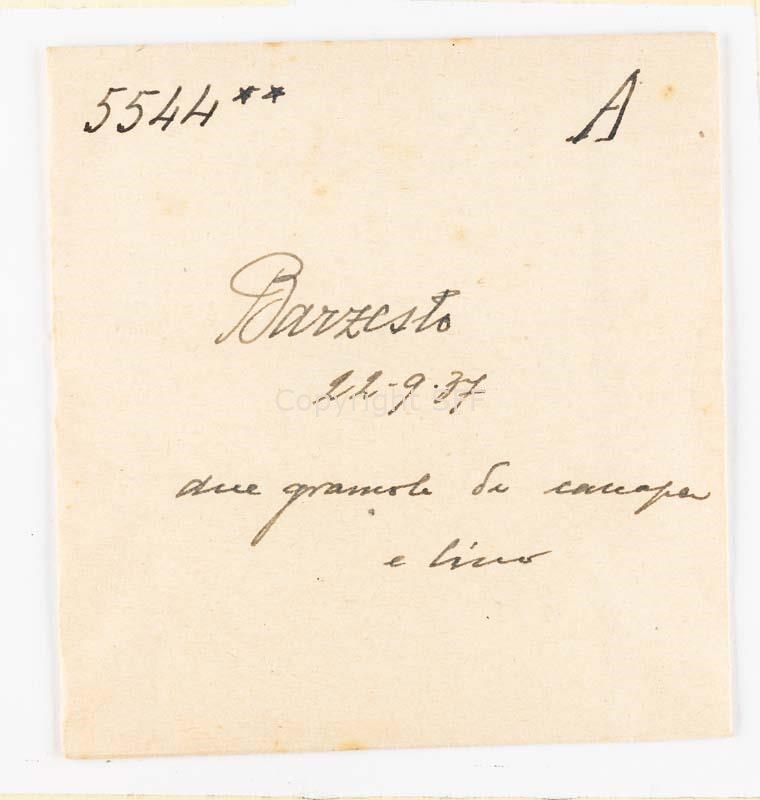 5544** A
Barzesto
22-9-37
Copyright SFF
due gramole di canapa
e lino